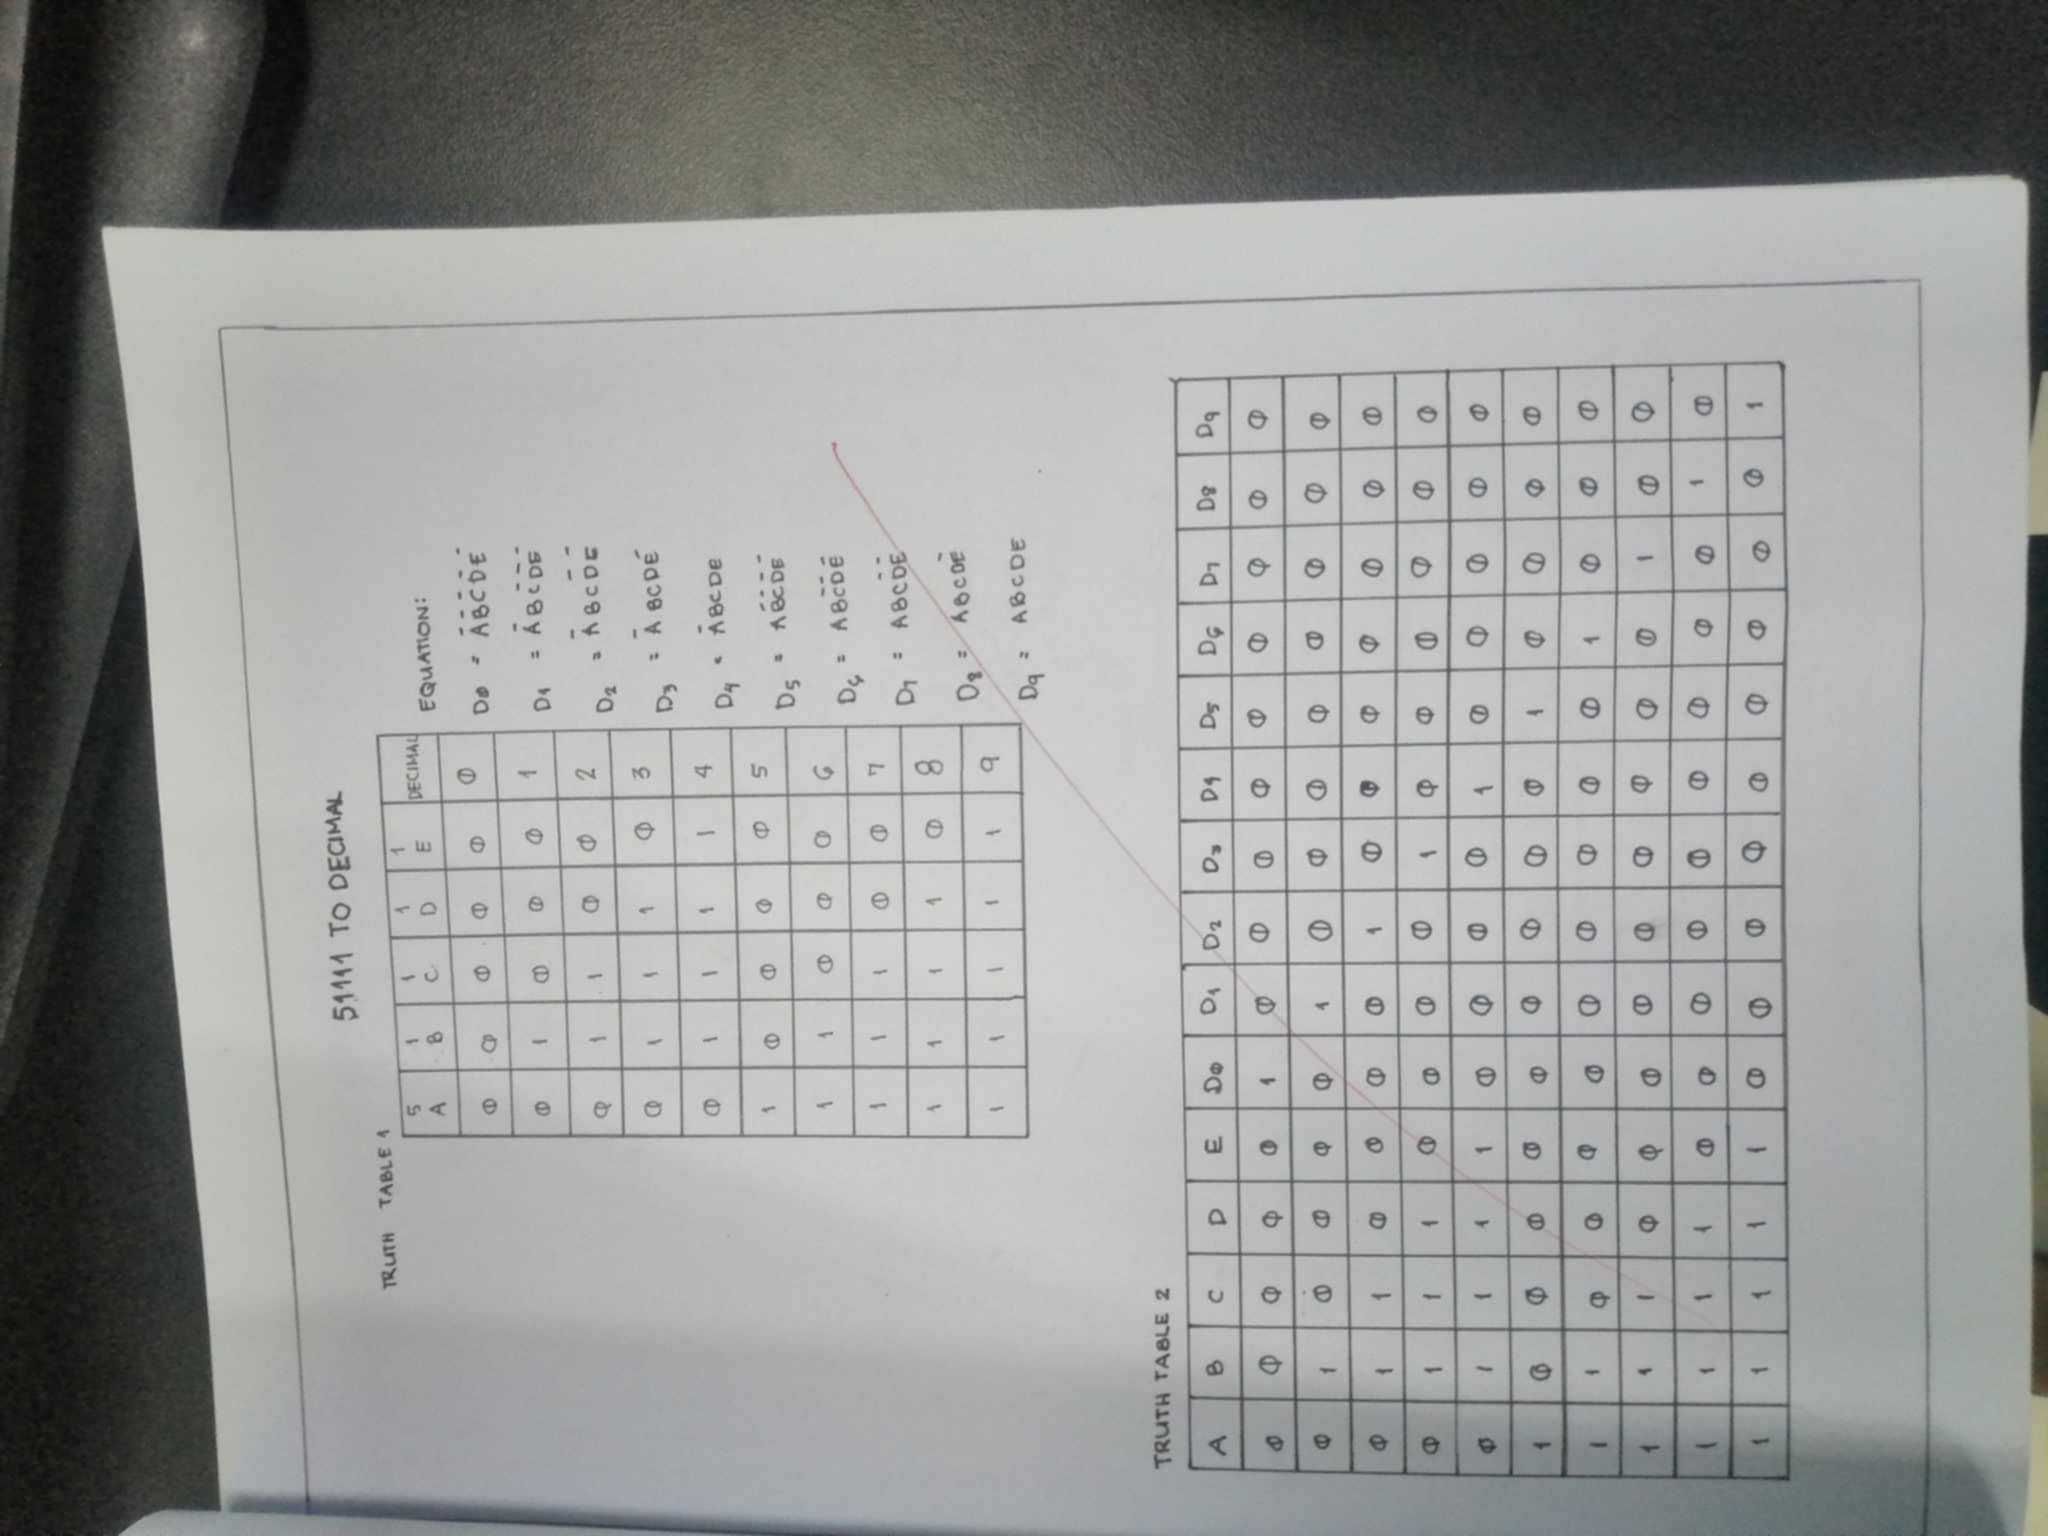 51111 TO DECIMAL
TRUTH TABLE 1
5 1 1 1 1
A B C D E DECIMAL
0 0 0 0 0 0
0 1 0 0 0 1
0 1 1 0 0 2
0 1 1 1 0 3
0 1 1 1 1 4
1 0 0 0 0 5
1 1 0 0 0 6
1 1 1 0 0 7
1 1 1 1 0 8
1 1 1 1 1 9
EQUATION:
D0 = A̅B̅C̅D̅E̅
D1 = A̅BC̅D̅E̅
D2 = A̅BCD̅E̅
D3 = A̅BCDE̅
D4 = A̅BCDE
D5 = AB̅C̅D̅E̅
D6 = ABC̅D̅E̅
D7 = ABCD̅E̅
D8 = ABCDE̅
D9 = ABCDE
TRUTH TABLE 2
A B C D E D0 D1 D2 D3 D4 D5 D6 D7 D8 D9
0 0 0 0 0 1 0 0 0 0 0 0 0 0 0
0 1 0 0 0 0 1 0 0 0 0 0 0 0 0
0 1 1 0 0 0 0 1 0 0 0 0 0 0 0
0 1 1 1 0 0 0 0 1 0 0 0 0 0 0
0 1 1 1 1 0 0 0 0 1 0 0 0 0 0
1 0 0 0 0 0 0 0 0 0 1 0 0 0 0
1 1 0 0 0 0 0 0 0 0 0 1 0 0 0
1 1 1 0 0 0 0 0 0 0 0 0 1 0 0
1 1 1 1 0 0 0 0 0 0 0 0 0 1 0
1 1 1 1 1 0 0 0 0 0 0 0 0 0 1